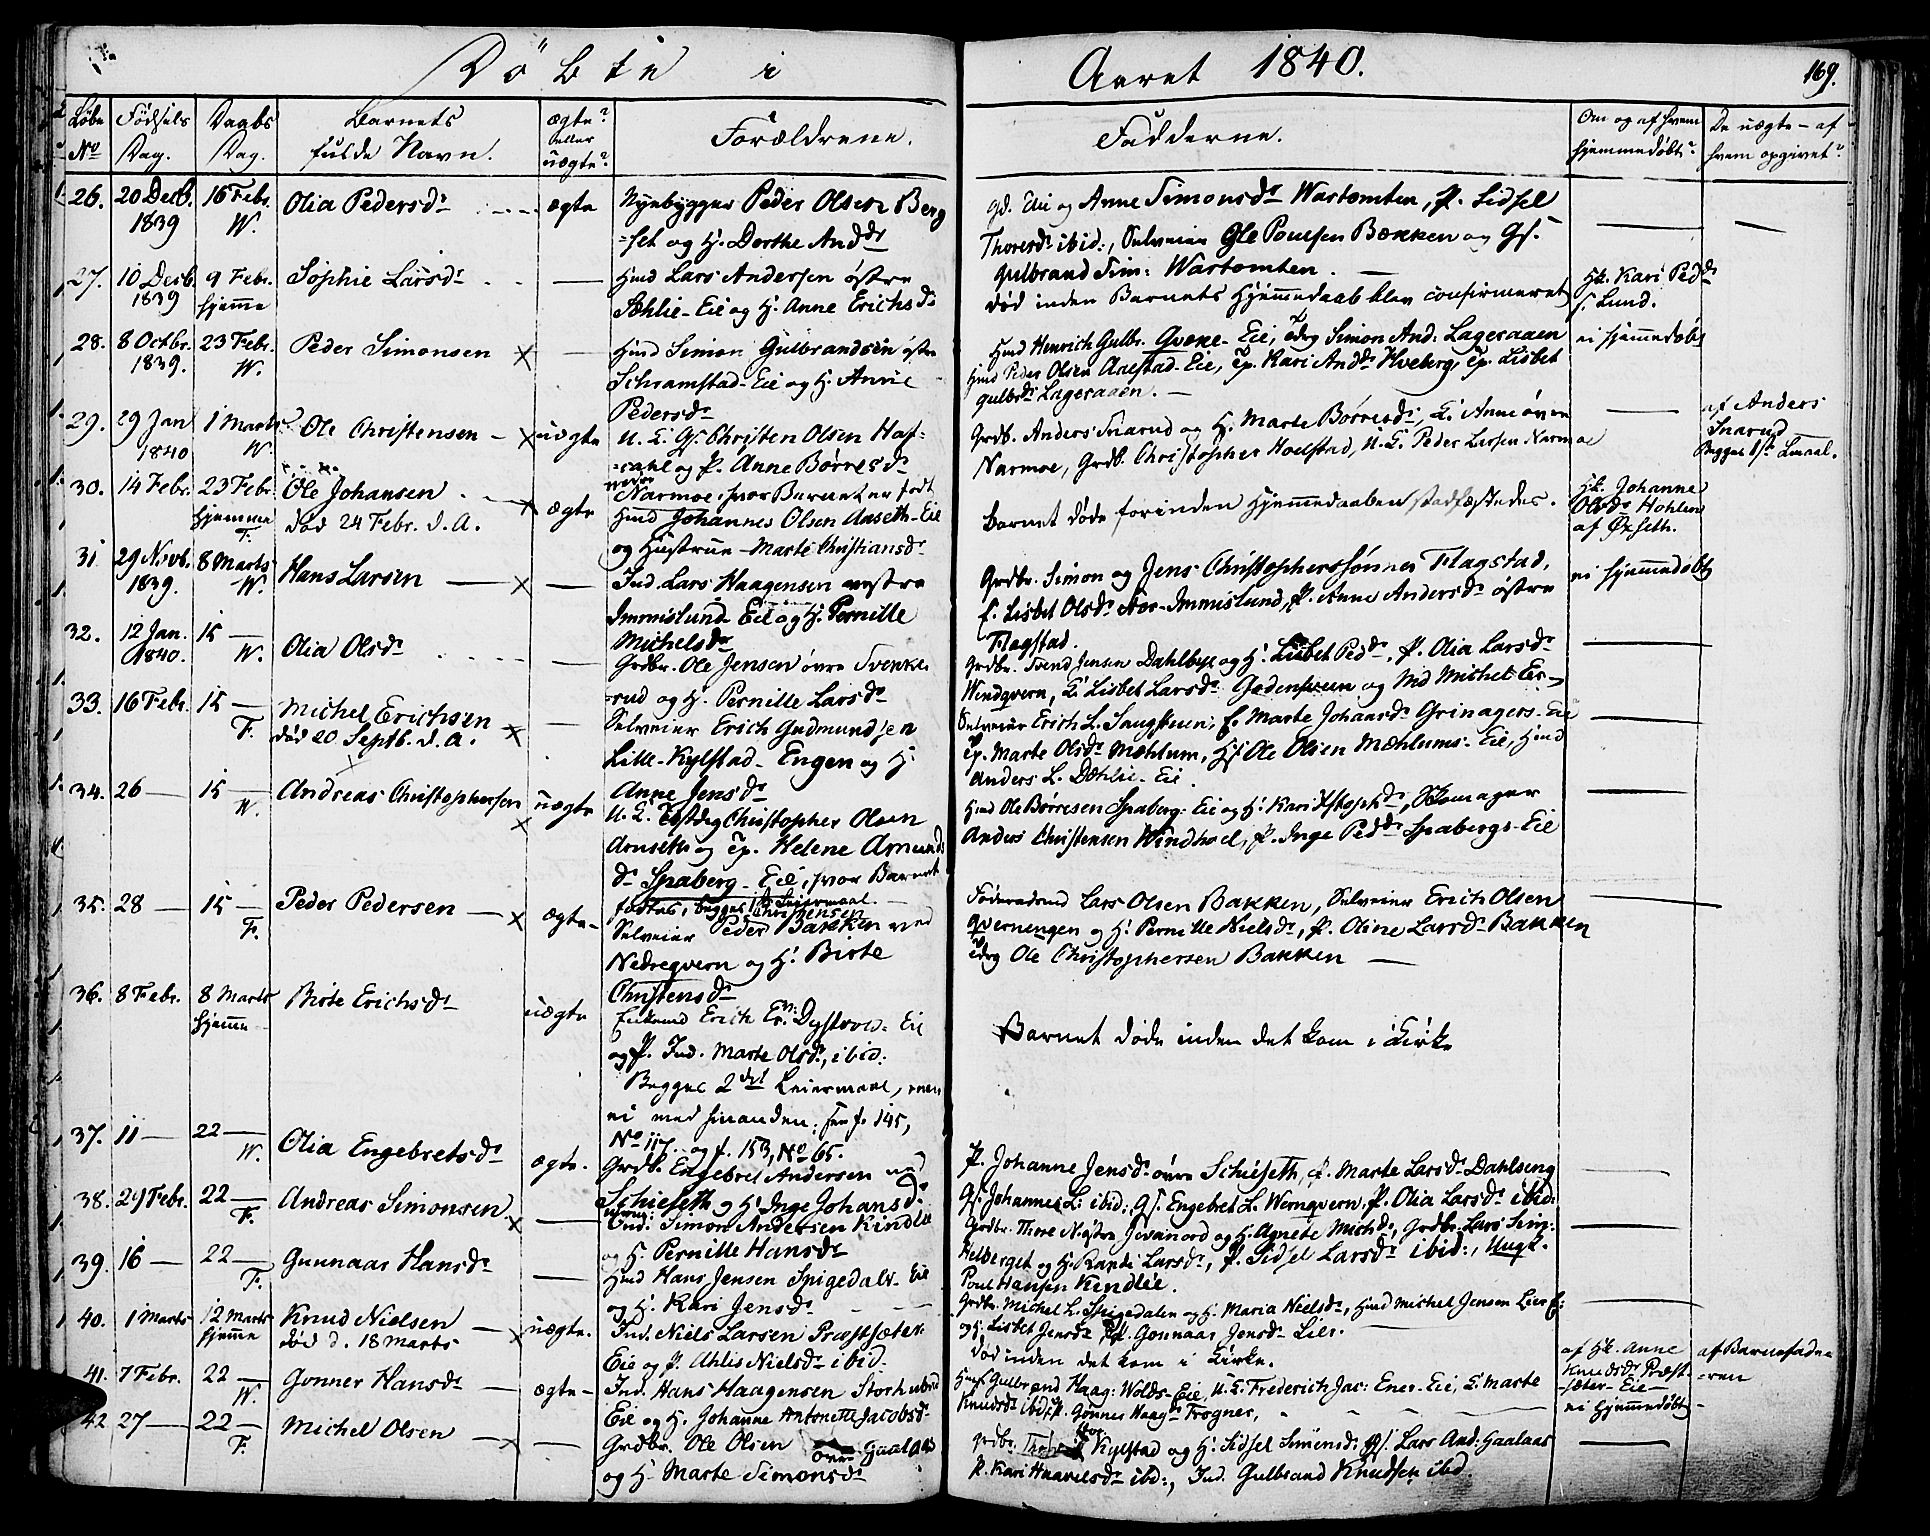 Döbte i Aaret 1840.
169.
Löbe No Födsels Dag. Daabs Dag. Barnets fulde Navn. ægte? eller uægte? Forældrene. Fadderne. Om og af hvem hjemmedöbt? De uægte - af hvem opgivet?
26. 20 Decb. 1839 16 Febr. W. Olia Pedersdr ægte Nyebygger Peder Olsen Berg
=set og H. Dorthe Anddr
gd. Eie og Anne Simonsdr Wastomten, P. Lidsel
Thoresdr ibid:, Selveier Ole Poulsen Bækken og Gf.
Gulbrand Sim: Wastomten. —
27. 10 Decb. 1839 9 Febr. hjemme Sophie Larsdr — Huusd Lars Andersen östre
Sæhlie-Eie og H. Anne Erichsdr
död inden Barnets Hjemmedaab blev confirmeret
Hk. Kari Peddr
Lund.
28. 8 Octbr. 1839. 23 Febr. W. Peder Simonsen × — Huusd Simon Gulbrandsen östre
Schramstad-Eie og H. Anne
Pedersdr
Huusd Henrich Gulbr. Qvæne-Eie, Simon And: Lageraaen
Huusd Peder Olsen Aarstad-Eie, Tp. Kari Anddr Hveberg, Tp. Lisbet
Gulbrdr Lageraaen. —
ei hjemmedöbt
29. 29 Jan 1840 1 Marts W. Ole Christensen × uægte U. K. Gf. Christen Olsen
og P. Anne Börresdr
nedre Narmoe, hvor Barnet er födt
Grdb. Anders Snarud og H. Marte Börresdr, K. Anne övre
Narmoe, Grdb. Christopher Hoelstad, U. K. Peder Larsen Narmoe
af Anders
Snarud
Begges 1ste Lmaal.
30. 14 Febr. 23 Febr. hjemme F. Ole Johansen
död 24 Febr. d. A.
× ægte Huusd Johannes Olsen Aaseth-Eie
og Hustrue Marte Christiansdr
Barnet döde forinden Hjemmedaaben stadfæstedes.
Hk. Johanne
Olsdr Hohlen
af Öxseth.
31 29 Novb. 1839. 8 Marts W. Hans Larsen — × — Ind. Lars Haagensen vestre
Immislund-Eie og H. Pernille
Michelsdr
Grdbr. Simon og Jens Christophersönner Flagstad,
E. Lisbet Olsdr Immislund, P. Anne Andersdr östre
Flagstad.
ei hjemmedöbt
32. 12 Jan. 1840. 15 — W. Olia Olsdr — Grdbr. Ole Jensen övre Svenke-
rud og H. Pernille Larsdr
Grdbr. Svend Jensen Dahlbye og H. Lisbet Peddr, P. Olia Larsdr
Windqvern, K. Lisbet Larsdr og Michel
33. 16 Febr. 15 — F. Michel Erichsen
död 20 Septb. d. A.
× — Selveier Erich Gudmundsen
Lille-Kylstad-Engen og H.
Anne Jensdr
Selveier Erich L. E. Marte Johansdr Grinagers-Eie
Tp. Marte Olsdr Mæhlum, Gf. Ole Olsen Mæhlums-Eie, Huusd
Anders L. Dæhlie-Eie
34. 26 — 15 — W. Andreas Christophersen × uægte U. K. Christopher Olsen
Arnseth og Tp. Helene Amunds
dr Spaberg-Eie, hvor Barnet
födtes, begges 1ste Leiermaal.
Huusd Ole Börresen Spaberg-Eie og H. Kari Xstophdr, Skomager
Anders Christensen Windhoel, P. Inge Peddr Spabergs-Eie
35. 28 — 15 — F. Peder Pedersen — × ægte — Selveier Peder Christensen Bakken ved
Nedreqvern og H. Birte
Christensdr
Föderaadsmd Lars Olsen Bakken, Selveier Erich Olsen
Qvernengen og H. Pernille Nielsdr, P. Oline Larsdr Bakken
Ole Christophersen Bakken —
36. 8 Febr. 8 Marts hjemme Birte Erichsdr uægte Enkemd Erich Er: Dystvold-Eie
og P. Ind. Marte Olsdr, ibid:
Begges 2det Leiermaal, men
ei med hinanden; see f. 145,
No 117. og f. 153, No 65.
Barnet döde inden det kom i Kirke
37. 11 — 22 — W. Olia Engebretsdr ægte. Grdb. Engebret Andersen
Schieseth og H. Inge Johansdr
P. Johanne Jensdr övre Schieseth, P. Marte Larsdr Dahlseng
Gf. Johannes L: ibid:, Gf. Engebret L. Wernqvern, P. Olia Larsdr ibid:
38. 29 Febr. 22 — F. Andreas Simonsen × — Ind: Simon Andersen Kindlie
og H. Pernille Hansdr
Grdbr. og H. Agnete Michdr, Grdbr. Lars Sim:
Helberget og H. Randi Larsdr, P. Sidsel Larsdr ibid:, Ungk.
Poul Hansen Kindlie.
39. 16 — 22 — F. Gunnaar Hansdr — Huusd Hans Jensen Spigedals-Eie
og H. Kari Jensdr
Grdbr. Michel L. Spigedalen og H. Maria Nielsdr, Huusd Michel Jensen Lier E:
og H. Lisbet Jensdr P. Gonnaar Jensdr Lier. —
40. 1 Marts 12 Marts hjemme Knud Nielsen
död d. 18 Marts
× uægte. Ind. Niels Larsen Præstsæter-
Eie og P. Ahlis Nielsdr ibid.
död inden det kom i Kirke.
af Hk. Anne
Knudsdr Præst-
=sæter-Eie —
af Barnefade-
=ren
41. 7 Febr. 22 — W. Gonner Hansdr — ægte — Ind. Hans Haagensen Storhubred
Eie og H. Johanne Antonette Jacobsdr
Huusd Gulbrand Haag: Wolds-Eie, U. K. Frederich Jac: Ener-Eie, K. Marte
Knudsdr ibid:, P. Gonner Haagdr Frogner,
ei hjemmedöbt
42 27 — 22 — F. Michel Olsen — × — Grdbr. Ole Olsen övre Gaalaas
og H. Marte Simonsdr
Grdbr. Kylstad og H: Sidsel Simensdr: Gf. Lars And: Gaalaas
P. Kari Haavelsdr ibid:, Ind. Gulbrand Knudsen ibid.